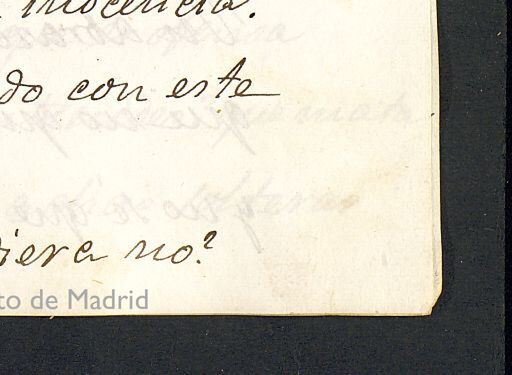 inocencia.
do con este
iera no?
to de Madrid